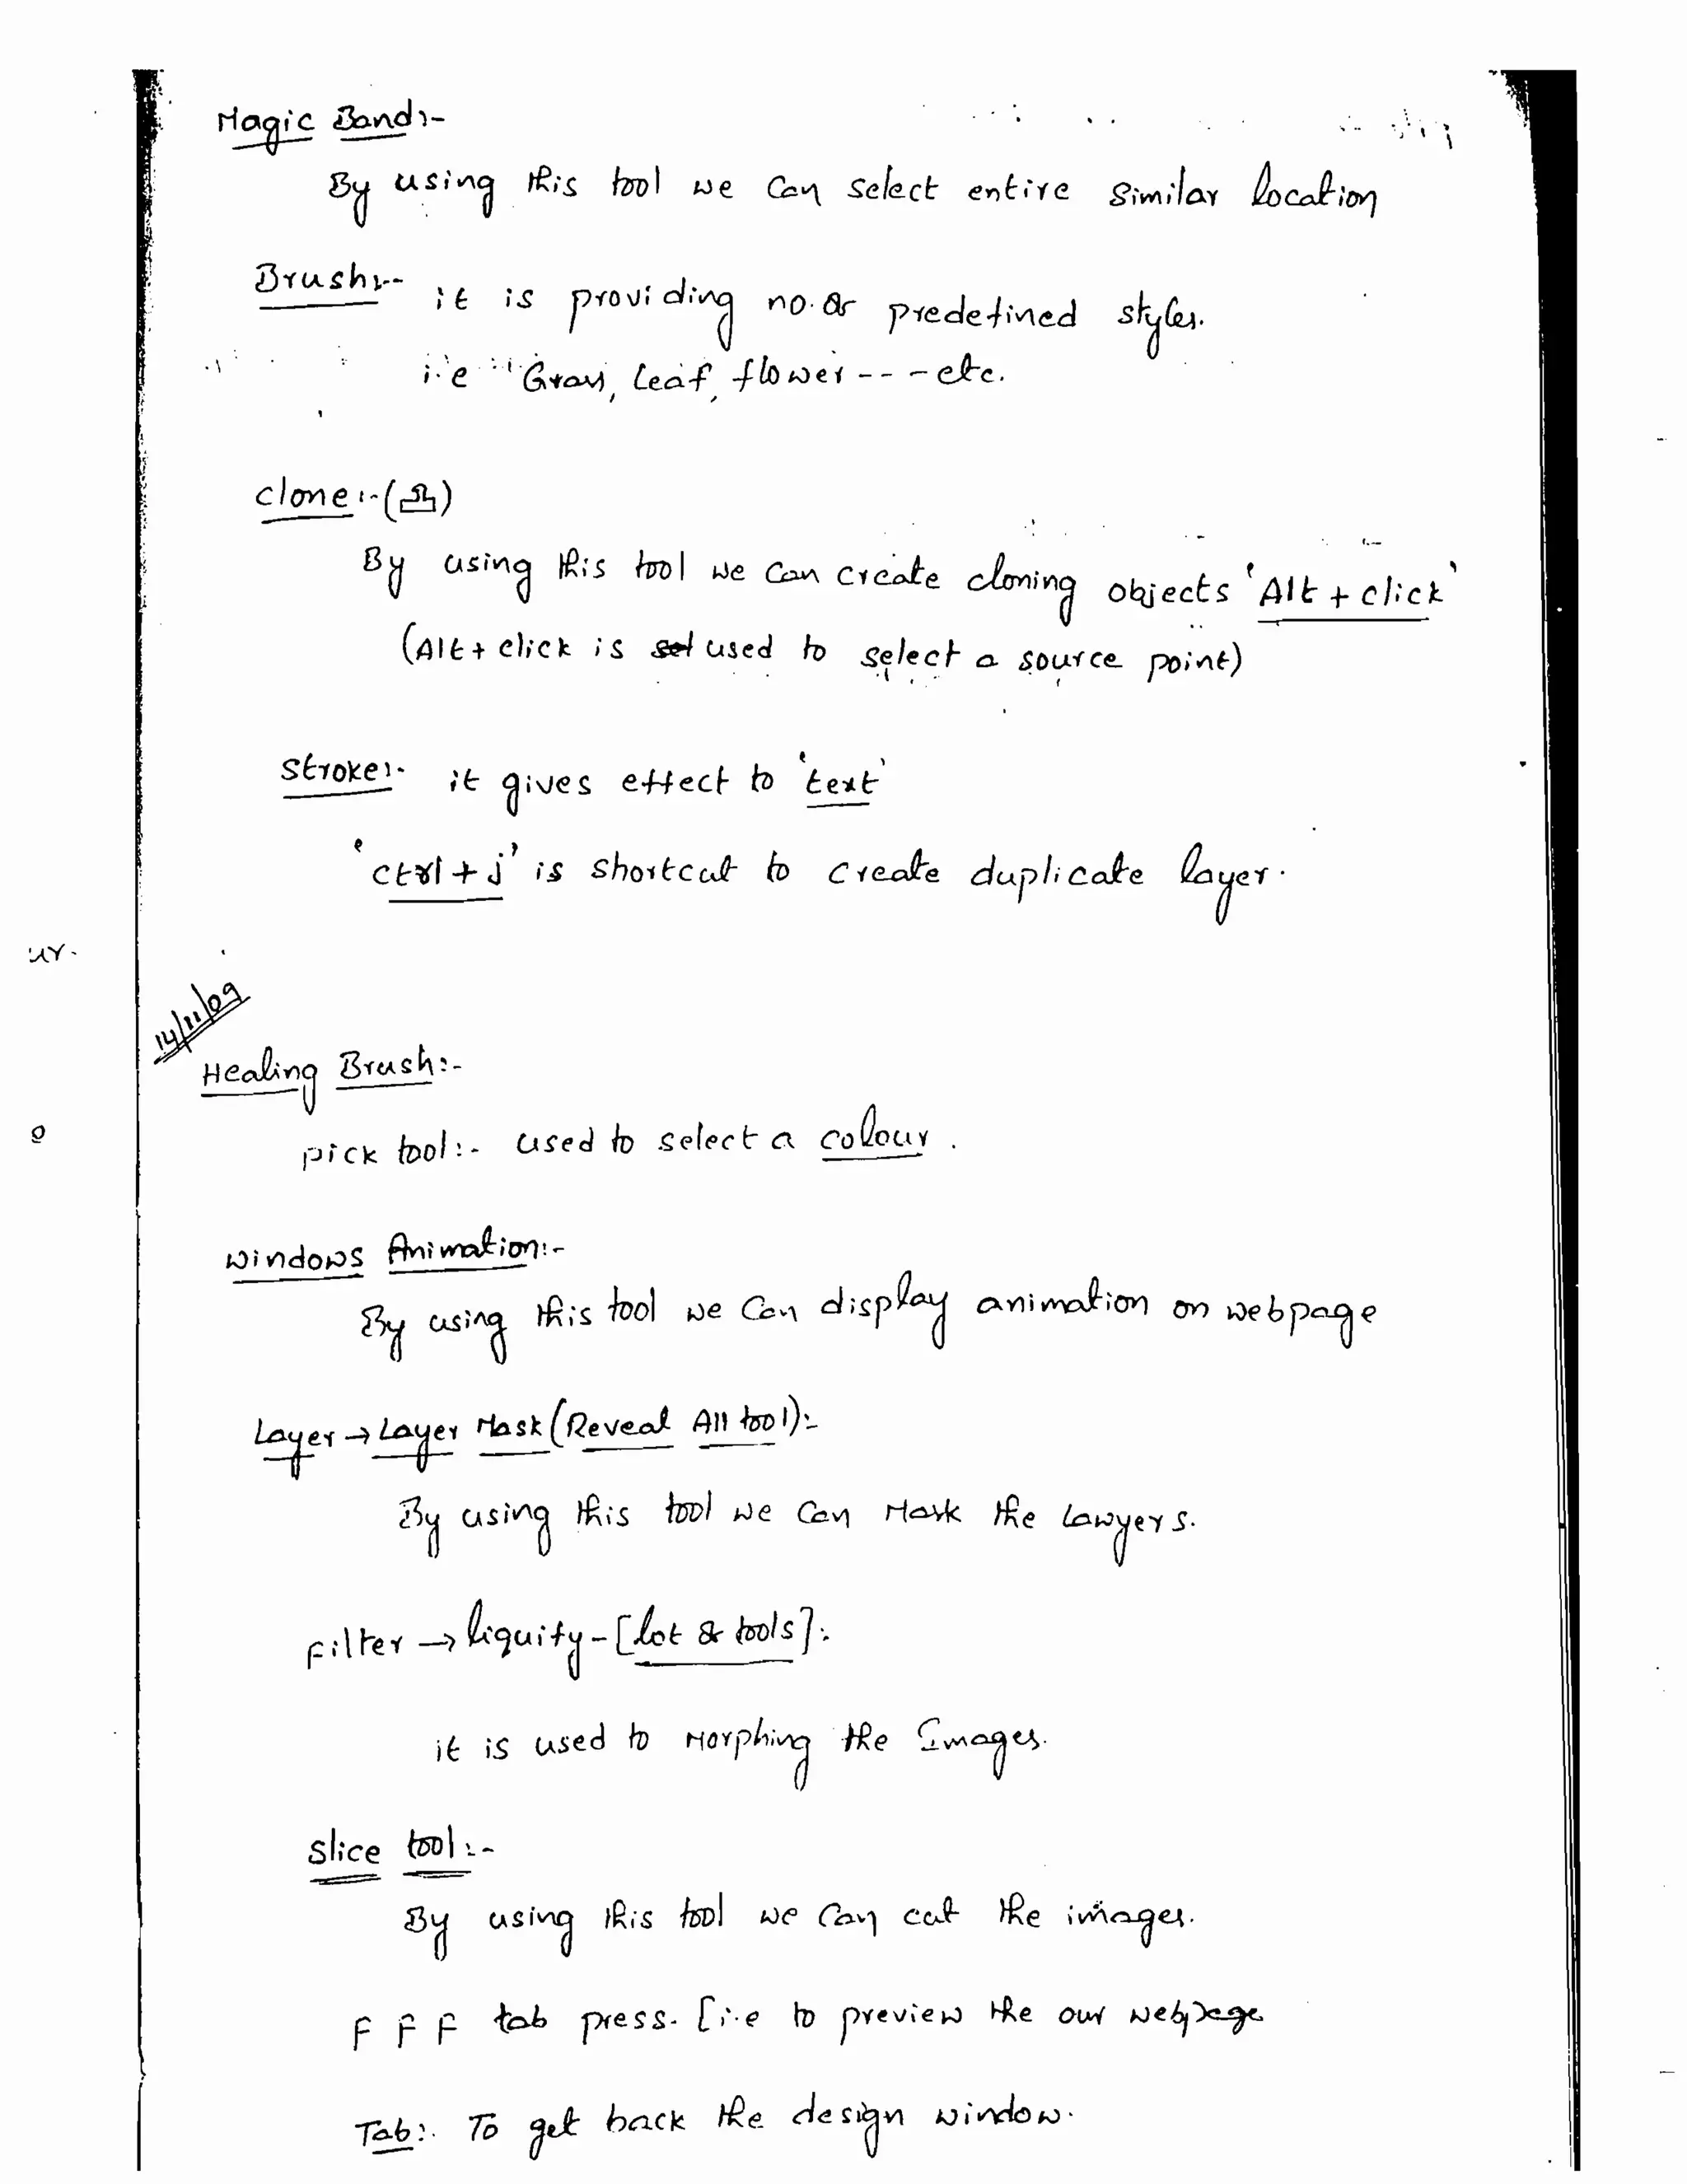 Magic Band:-
By using this tool we can select entire similar location
Brush:-- it is providing no. of predefined styles.
i.e Grass, leaf, flower --- etc.
clone:-( )
By using this tool we can create cloning objects 'Alt + click'
(Alt + click is used to select a source point)
Stroke:- it gives effect to 'text'
'ctrl + j' is shortcut to create duplicate layer.
ur.
14/11/09
Healing Brush:-
pick tool:- used to select a colour.
windows Animation:-
By using this tool we can display animation on webpage
Layer → Layer Mask (Reveal All tool):-
By using this tool we can Mask the Lawyers.
Filter → liquify - [lot of tools]:
it is used to Morphing the Images.
Slice tool:-
By using this tool we can cut the images.
F F F tab press. [i.e to preview the our webpage
Tab:. To get back the design window.